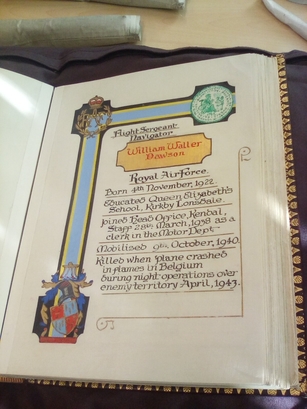 Flight Sergeant
Navigator
William Waller
Dawson
Royal Air Force.
Born 4th November, 1922.
Educated Queen Elizabeth's
School, Kirkby Lonsdale.
Joined Head Office, Kendal,
Staff 28th March, 1938 as a
clerk in the Motor Dept.
Mobilised 9th October, 1940.
Killed when plane crashed
in flames in Belgium
during night operations over
enemy territory April, 1943.